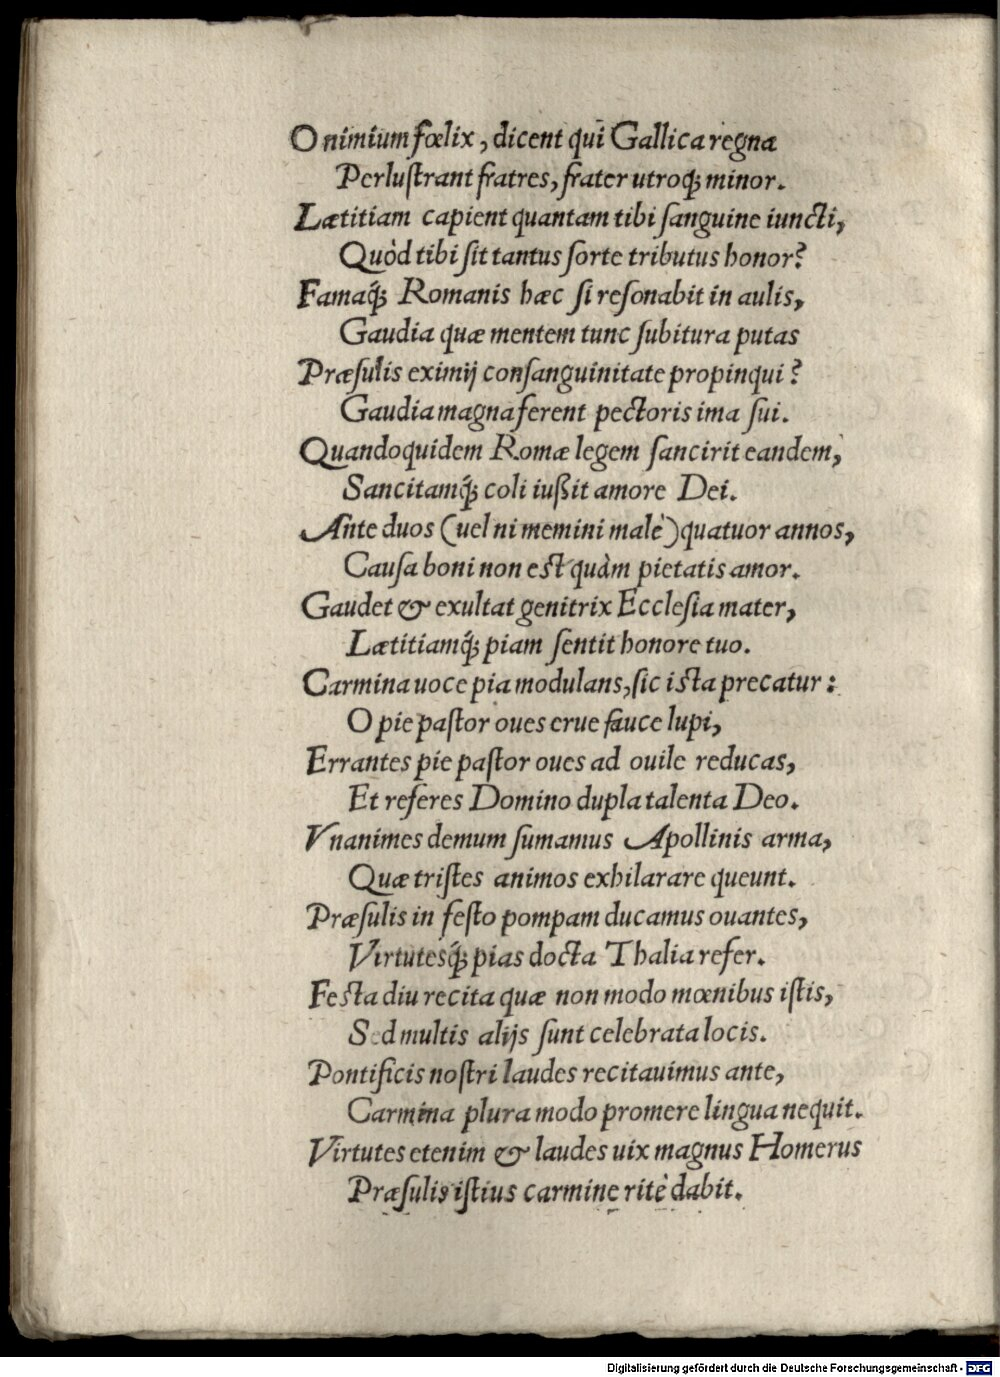 O nimium fœlix, dicent qui Gallica regna
Perluſtrant fratres, frater utroq́; minor.
Lætitiam capient quantam tibi ſanguine iuncti,
Quòd tibi ſit tantus ſorte tributus honor?
Famaq́; Romanis hæc ſi reſonabit in aulis,
Gaudia quæ mentem tunc ſubitura putas
Præſulis eximij conſanguinitate propinqui?
Gaudia magna ferent pectoris ima ſui.
Quandoquidem Romæ legem ſancirit eandem,
Sancitamq́; coli iußit amore Dei.
Ante duos (uel ni memini malè) quatuor annos,
Cauſa boni non est quàm pietatis amor.
Gaudet & exultat genitrix Eccleſia mater,
Lætitiamq́; piam ſentit honore tuo.
Carmina uoce pia modulans, ſic ista precatur:
O pie paſtor oues erue fauce lupi,
Errantes pie paſtor oues ad ouile reducas,
Et referes Domino dupla talenta Deo.
Vnanimes demum ſumamus Apollinis arma,
Quæ triſtes animos exhilarare queunt.
Præſulis in feſto pompam ducamus ouantes,
Virtutesq́; pias docta Thalia refer.
Festa diu recita quæ non modo mœnibus iſtis,
Sed multis alijs ſunt celebrata locis.
Pontificis noſtri laudes recitauimus ante,
Carmina plura modo promere lingua nequit.
Virtutes etenim & laudes uix magnus Homerus
Præſulis iſtius carmine ritè dabit.
Digitalisierung gefördert durch die Deutsche Forschungsgemeinschaft - DFG